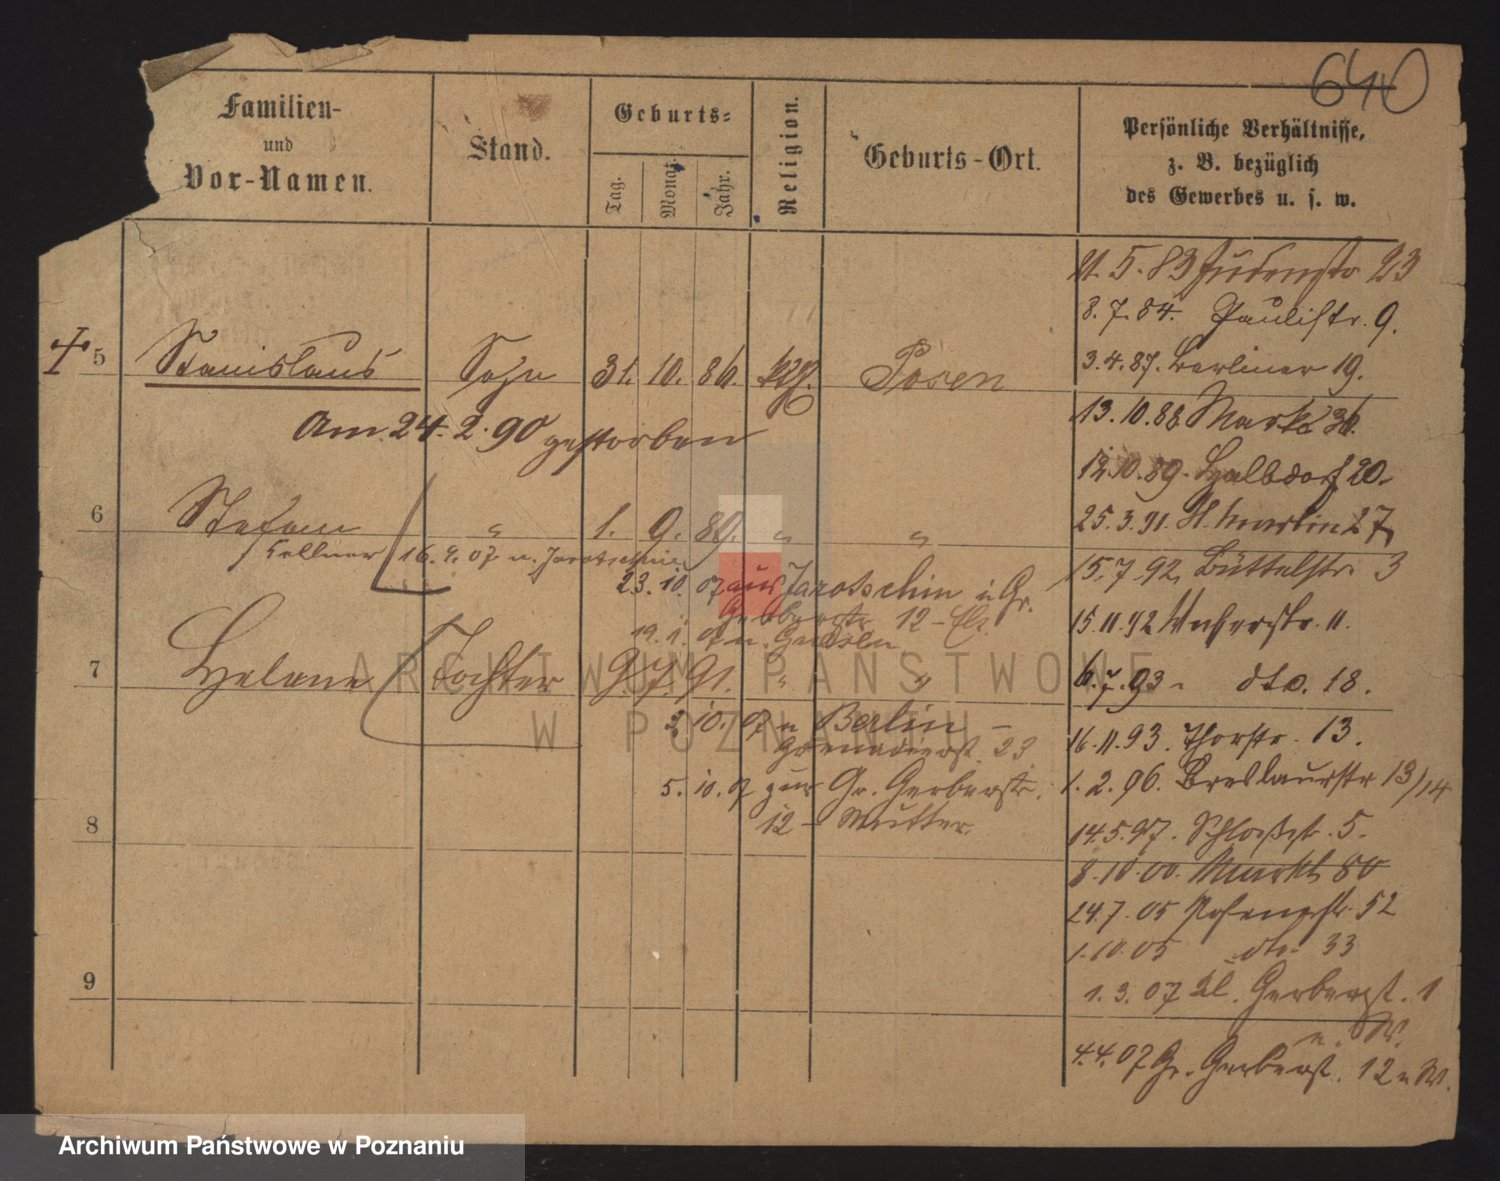 640
Familien-
und
Vor-Namen.
Stand.
Geburts-
Tag.
Monat.
Jahr.
Religion.
Geburts-Ort.
Persönliche Verhältnisse,
z. B. bezüglich
des Gewerbes u. s. w.
21.5.83 Judenstr 23
8.7.84. Paulistr. 9.
3.4.87. Berliner 19.
5 Stanislaus Sohn 31. 10. 86. kth. Posen
13.10.88 Markt 36.
Am 24.2.90 gestorben
12.10.89. Halbdorf 20.
6 Stefan " 1. 9. 89. " "
25.3.91. St. Martin 27
Kellner 16.9.07 n. Jarotschin
15.7.92. Büttelstr. 3
23.10.07 aus Jarotschin i Gr.
Gerberstr. 12
15.11.92 11.
19.1. n. Gnesen
7 Helene Tochter 9 7. 91. " "
6.7.93. dto. 18.
3. 10. 07 n Berlin -
Grenadierst. 23
16.11.93. Thorstr. 13.
5. 10. 07 zur Gr. Gerberstr.
12 - Mutter
1.2.96. Breslauerstr 13/14
8
14.5.97. Schloßstr. 5.
8.10.00. Markt 80
24.7.05 52
1.10.05 dto 33
9
1.3.07 Kl. Gerberst. 1
n. W.
4.4.07 Gr. Gerberst. 12 n W.
ARCHIWUM PAŃSTWOWE
W POZNANIU
Archiwum Państwowe w Poznaniu